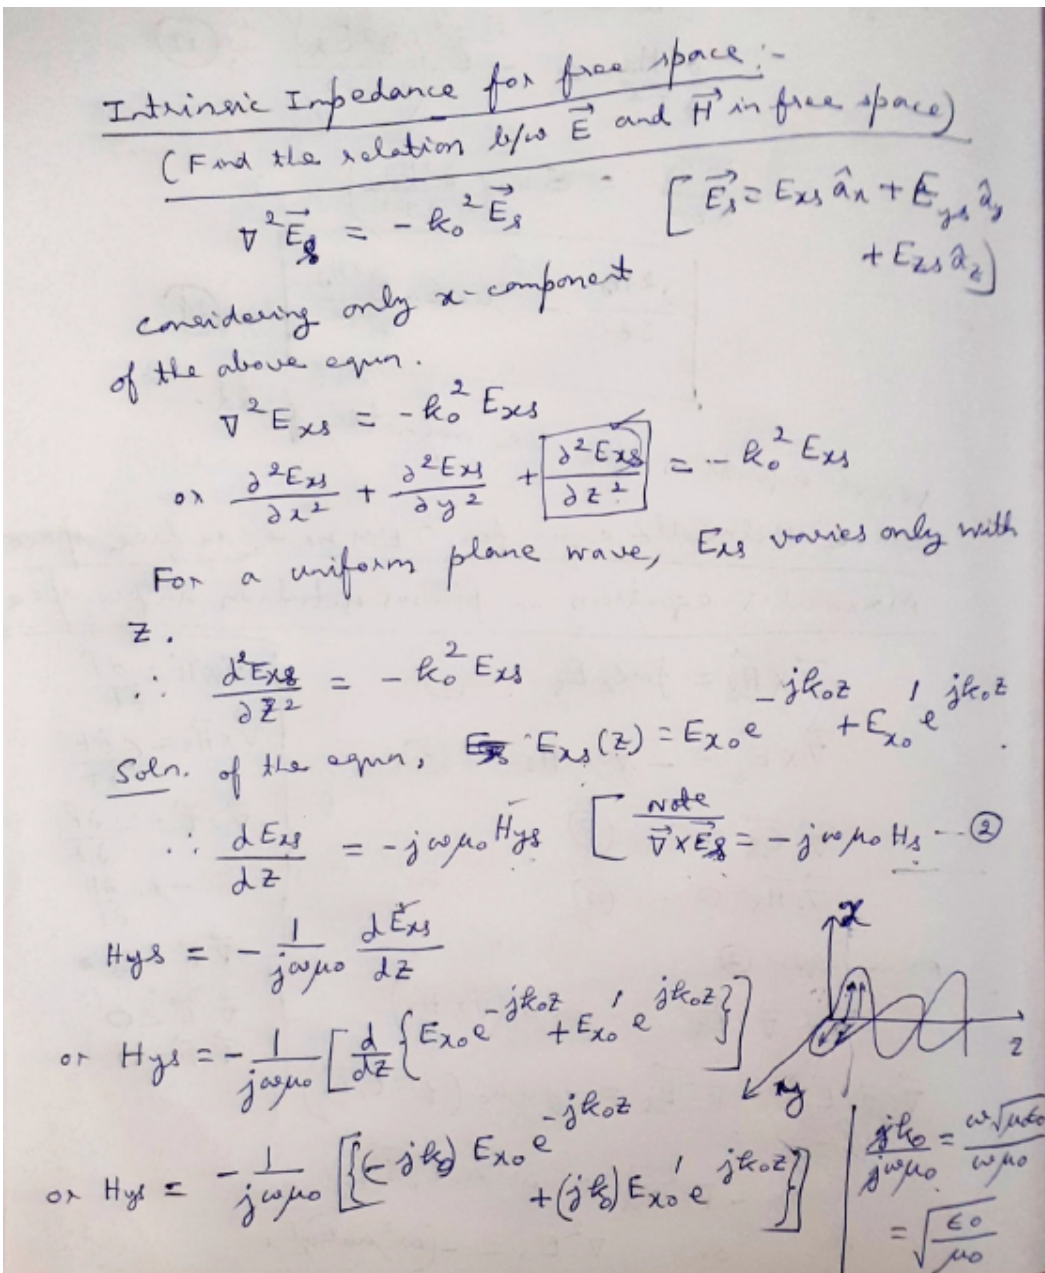 Intrinsic Impedance for free space :-
(Find the relation b/w E⃗ and H⃗ in free space)
∇²E⃗s = - k₀² E⃗s [ E⃗s = Exs âx + Eys ây
+ Ezs âz ]
Considering only x-component
of the above eqn.
∇² Exs = - k₀² Exs
or ∂²Exs/∂x² + ∂²Exs/∂y² + ∂²Exs/∂z² = - k₀² Exs
For a uniform plane wave, Exs varies only with
z.
∴ d²Exs/∂z² = - k₀² Exs
Soln. of the eqn, Exs(z) = Ex₀ e^(-jk₀z) + E'x₀ e^(jk₀z)
∴ dExs/dz = - jωμ₀ Hys [ Note ∇⃗ x E⃗s = - jωμ₀ Hs -- ②
Hys = - 1/(jωμ₀) dExs/dz
x
z
y
or Hys = - 1/(jωμ₀) [ d/dz { Ex₀ e^(-jk₀z) + E'x₀ e^(jk₀z) } ]
or Hys = - 1/(jωμ₀) [ { (-jk₀) Ex₀ e^(-jk₀z)
+ (jk₀) E'x₀ e^(jk₀z) } ]
jk₀/(jωμ₀) = ω√(μ₀ε₀)/(ωμ₀)
= √(ε₀/μ₀)